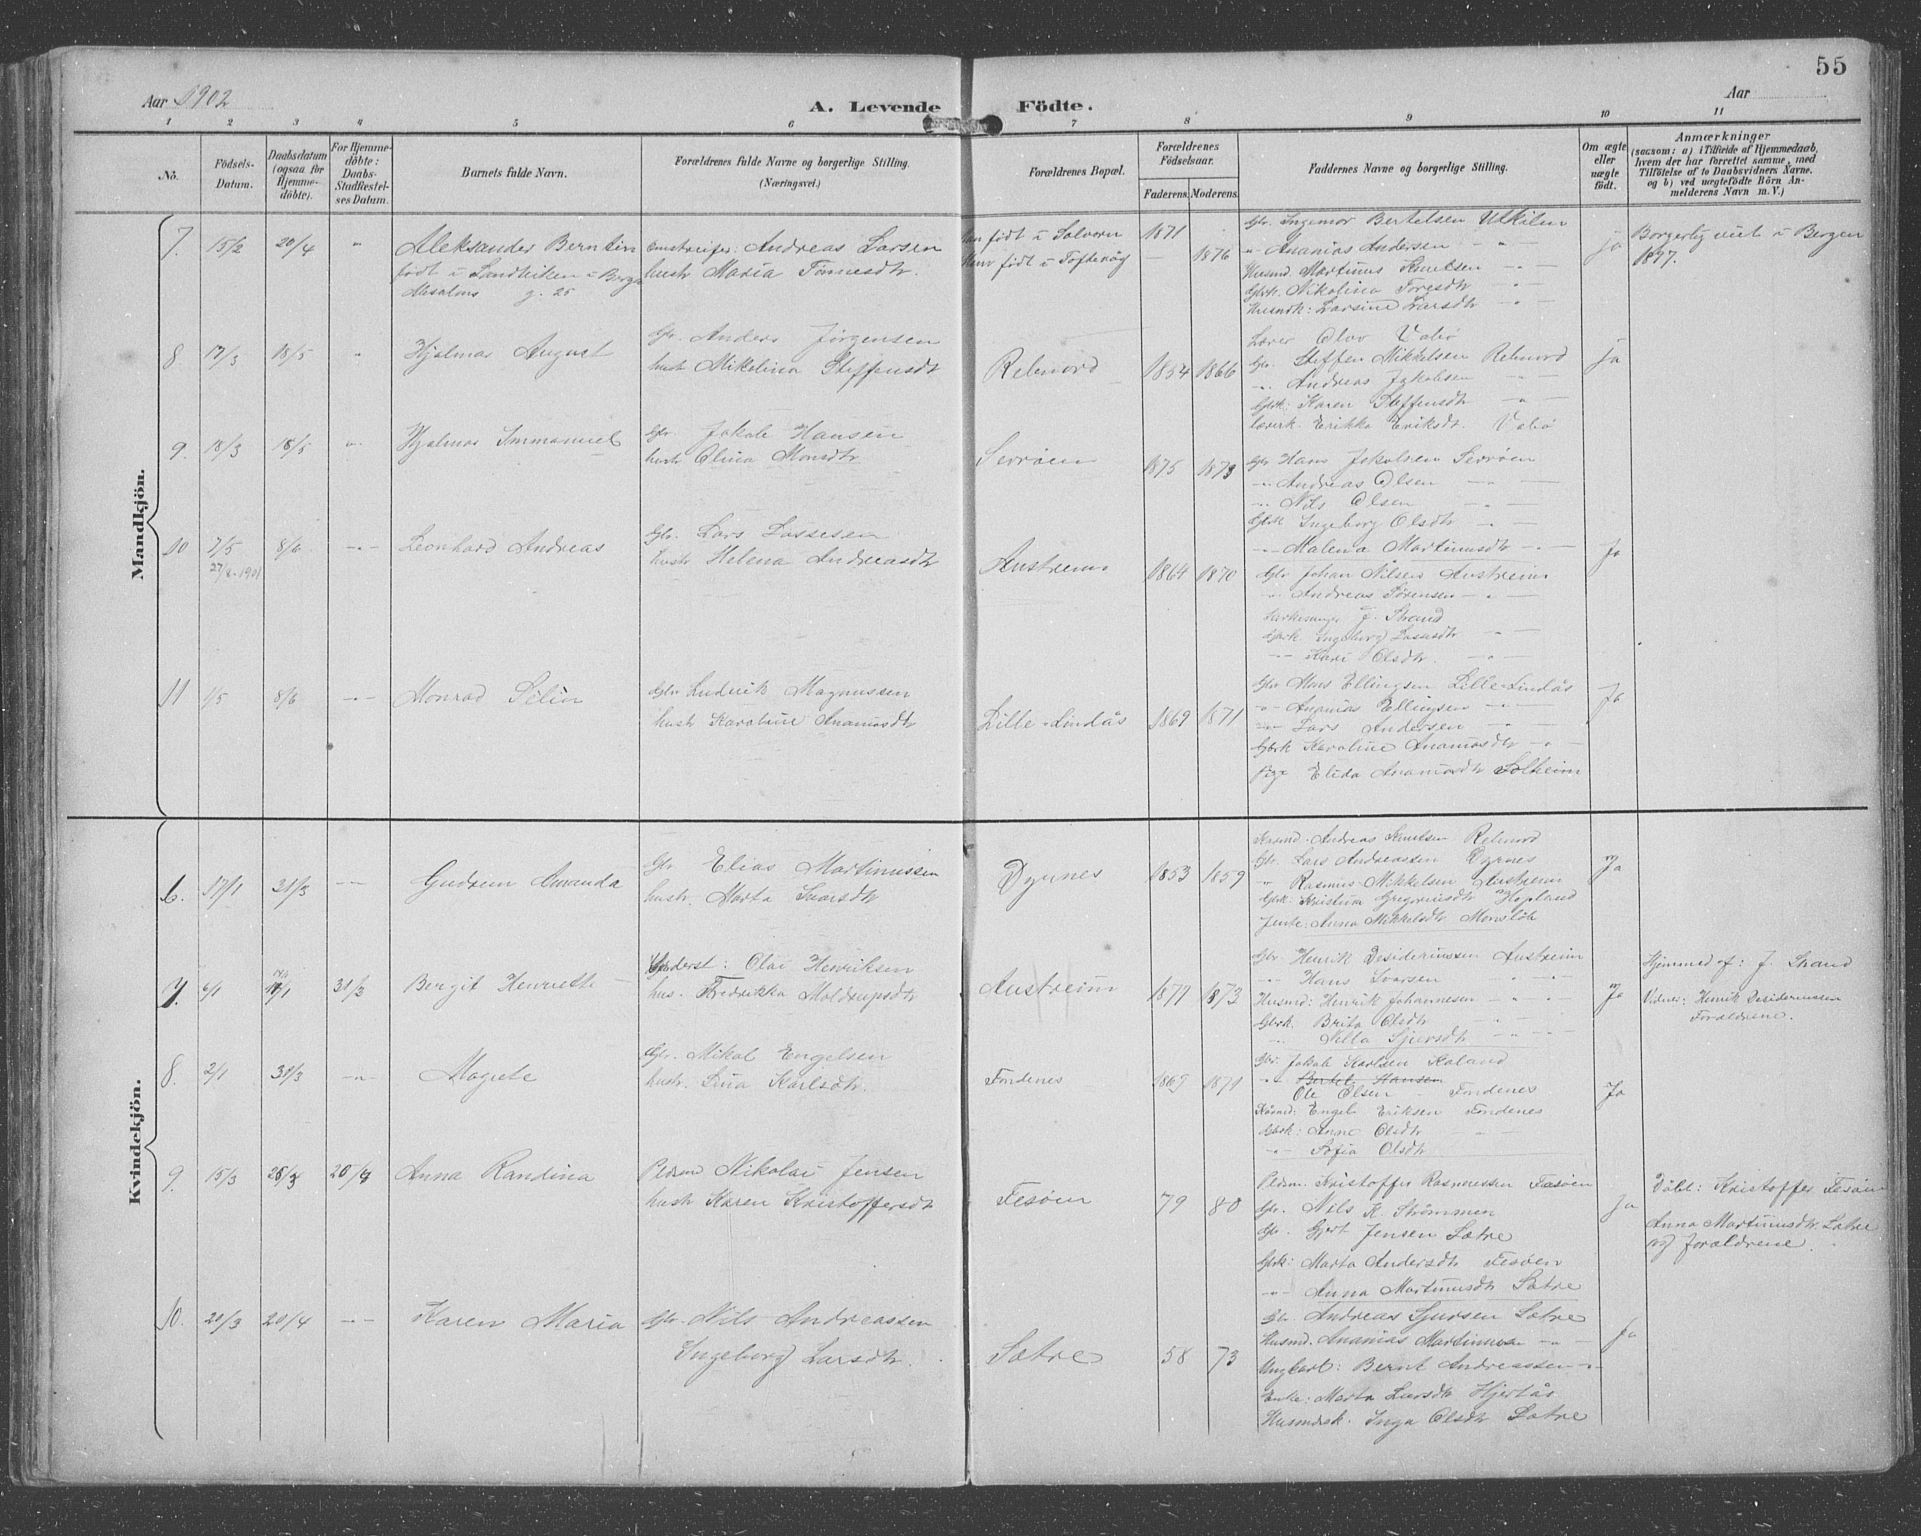 55
Aar 1902
A. Levende Födte.
Aar
1 2 3 4 5 6 7 8 9 10 11
No.
Födsels-Datum.
Daabsdatum (ogsaa for Hjemme-döbte).
For Hjemme-döbte: Daabs-Stadfæstel-ses Datum.
Barnets fulde Navn.
Forældrenes fulde Navne og borgerlige Stilling. (Næringsvei.)
Forældrenes Bopæl.
Forældrenes Födselsaar.
Faderens. Moderens.
Faddernes Navne og borgerlige Stilling.
Om ægte eller uægte födt.
Anmærkninger
(saasom: a) i Tilfælde af Hjemmedaab, hvem der har forrettet samme, med Tilföielse af to Daabsvidners Navne. og b) ved uægtefödte Börn An-melderens Navn m. V.)
Mandkjön.
7. 15/2 20/4 " Aleksander Berntin
født i Sandviken i Berg
Andreas Larsen
hustr Maria Tønnesdtr.
født i Solvorn
født i Toftevåg
1871 1876
Gbr. Ingemor Bertelsen Utkilen
" Ananias Andersen " —
Husmd. Martinus Knutsen " —
Gbrk. Nikolina Toresdtr " —
Husmk: Larsine Larsdtr " —
ja
Borgerlig viet i Bergen
1897.
8 17/3 18/5 " Hjalmar August
Gbr. Anders Jørgensen
hustr Mikelina Steffensdtr
Rebnord
1854 1866
Lærer Olav Vabø
Gbr. Steffen Mikkelsen Rebnord
" Andreas Jakobsen " —
Gbrk: Karen Steffensdtr "
Lærerk. Erikka Eriksdt. Vabø
ja
9. 18/3 18/5 " Hjalmar Immanuel
Gbr. Jakob Hansen
hustr Olina Monsdtr
Serrøen
1875 1873
Gbr Hans Jakobsen Serrøen
" Andreas Olsen — " —
" Nils Olsen " —
Gbrk Ingeborg Olsdtr " —
" Malena Martinusdtr — " —
10 7/5 8/6 — " — Leonhard Andreas
27/8-1901
Gbr. Lars Lassesen
hustr Helena Andreasdtr
Austreim
1864 1870
Ja
Gbr Johan Nilsen Austreim
" Andreas Sørensen — " —
Kirkesanger J. Strand
Gbrk Ingeborg Lassesdtr " —
— " — Kari Olsdtr. — " —
11 1/5 8/6 — " — Monrad Selin
Gbr Ludvik Magnussen
hustr Karoline Ananiasdtr
Lille-Lindås
1869 1871
Gbr Mons Ellingsen Lille-Lindås
" Ananias Ellingsen " —
" Lars Andersen " —
Gbrk Karoline Ananiasdtr — " —
Pige Elida Ananiasdtr Solheim
Ja
Kvindekjön.
6. 17/1 31/3 — " — Gudrun Amanda
Gbr Elias Martinussen
hustr. Marta Ivarsdtr
Dyrnes
1853 1859
Andreas Knutsen Rebnord
Gbr. Lars Andreassen Dyrnes
" Rasmus Mikkelsen Austreim
Gbrk: Kristina Gregoriusdtr Hopland
Jente: Anna Mikkelsdtr Monsløb
Ja
7. 6/1 31/3 Bergit Henriette
Olai Henriksen
hus. Fredrikka Moldrupsdtr
Austreim
1877 1873
Gbr. Henrik Desideriussen Austreim
" Hans Ivarsen " —
Husmd: Henrik Johannesen — " —
Gbrk. Brita Olsdtr " —
" Nilla Sjursdtr " —
Ja
Hjemmed. af: J. Strand
Vidner: Henrik Desideriussen
Foræeldrene.
8. 2/1 31/3 — " — Magrete
Gbr. Mikal Engelsen
hustr. Karlsdtr.
Fondenes
1869 1871
Gbr. Jakob Karlsen Kaland
" Bertel Hansen
Ole Olsen — Fondenes
Engel Eriksen Fondenes
Gbrk: Anne Olsdtr
" Sofia Olsdtr
Ja
9. 15/3 Anna Randina
Nikolai Jensen
hustr Karen Kristoffersdtr
Fesøen
79 80
Kristoffer Rasmussen Fesøen
Gbr. Nils K Strømmen
Gbr. Gjert Jensen Sætre
Gbrk: Marta Andersdtr Fesøen
" Anna Martinusdtr Sætre
Ja
Døbt: Kristoffer Fesøen
Anna Martinusdtr. Sætre
og forældrene.
10. 20/3 20/4 — " — Karen Maria
Gbr. Nils Andreassen
Ingeborg Larsdtr.
Sætre
58 73
Gbr. Andreas Sjursen Sætre
Husmd. Ananias Martinussen " —
Ungkarl: Bernt Andreassen "
Enke: Marta Larsdtr Hjertås
Husmdsk. Inga Olsdtr Sætre
Ja